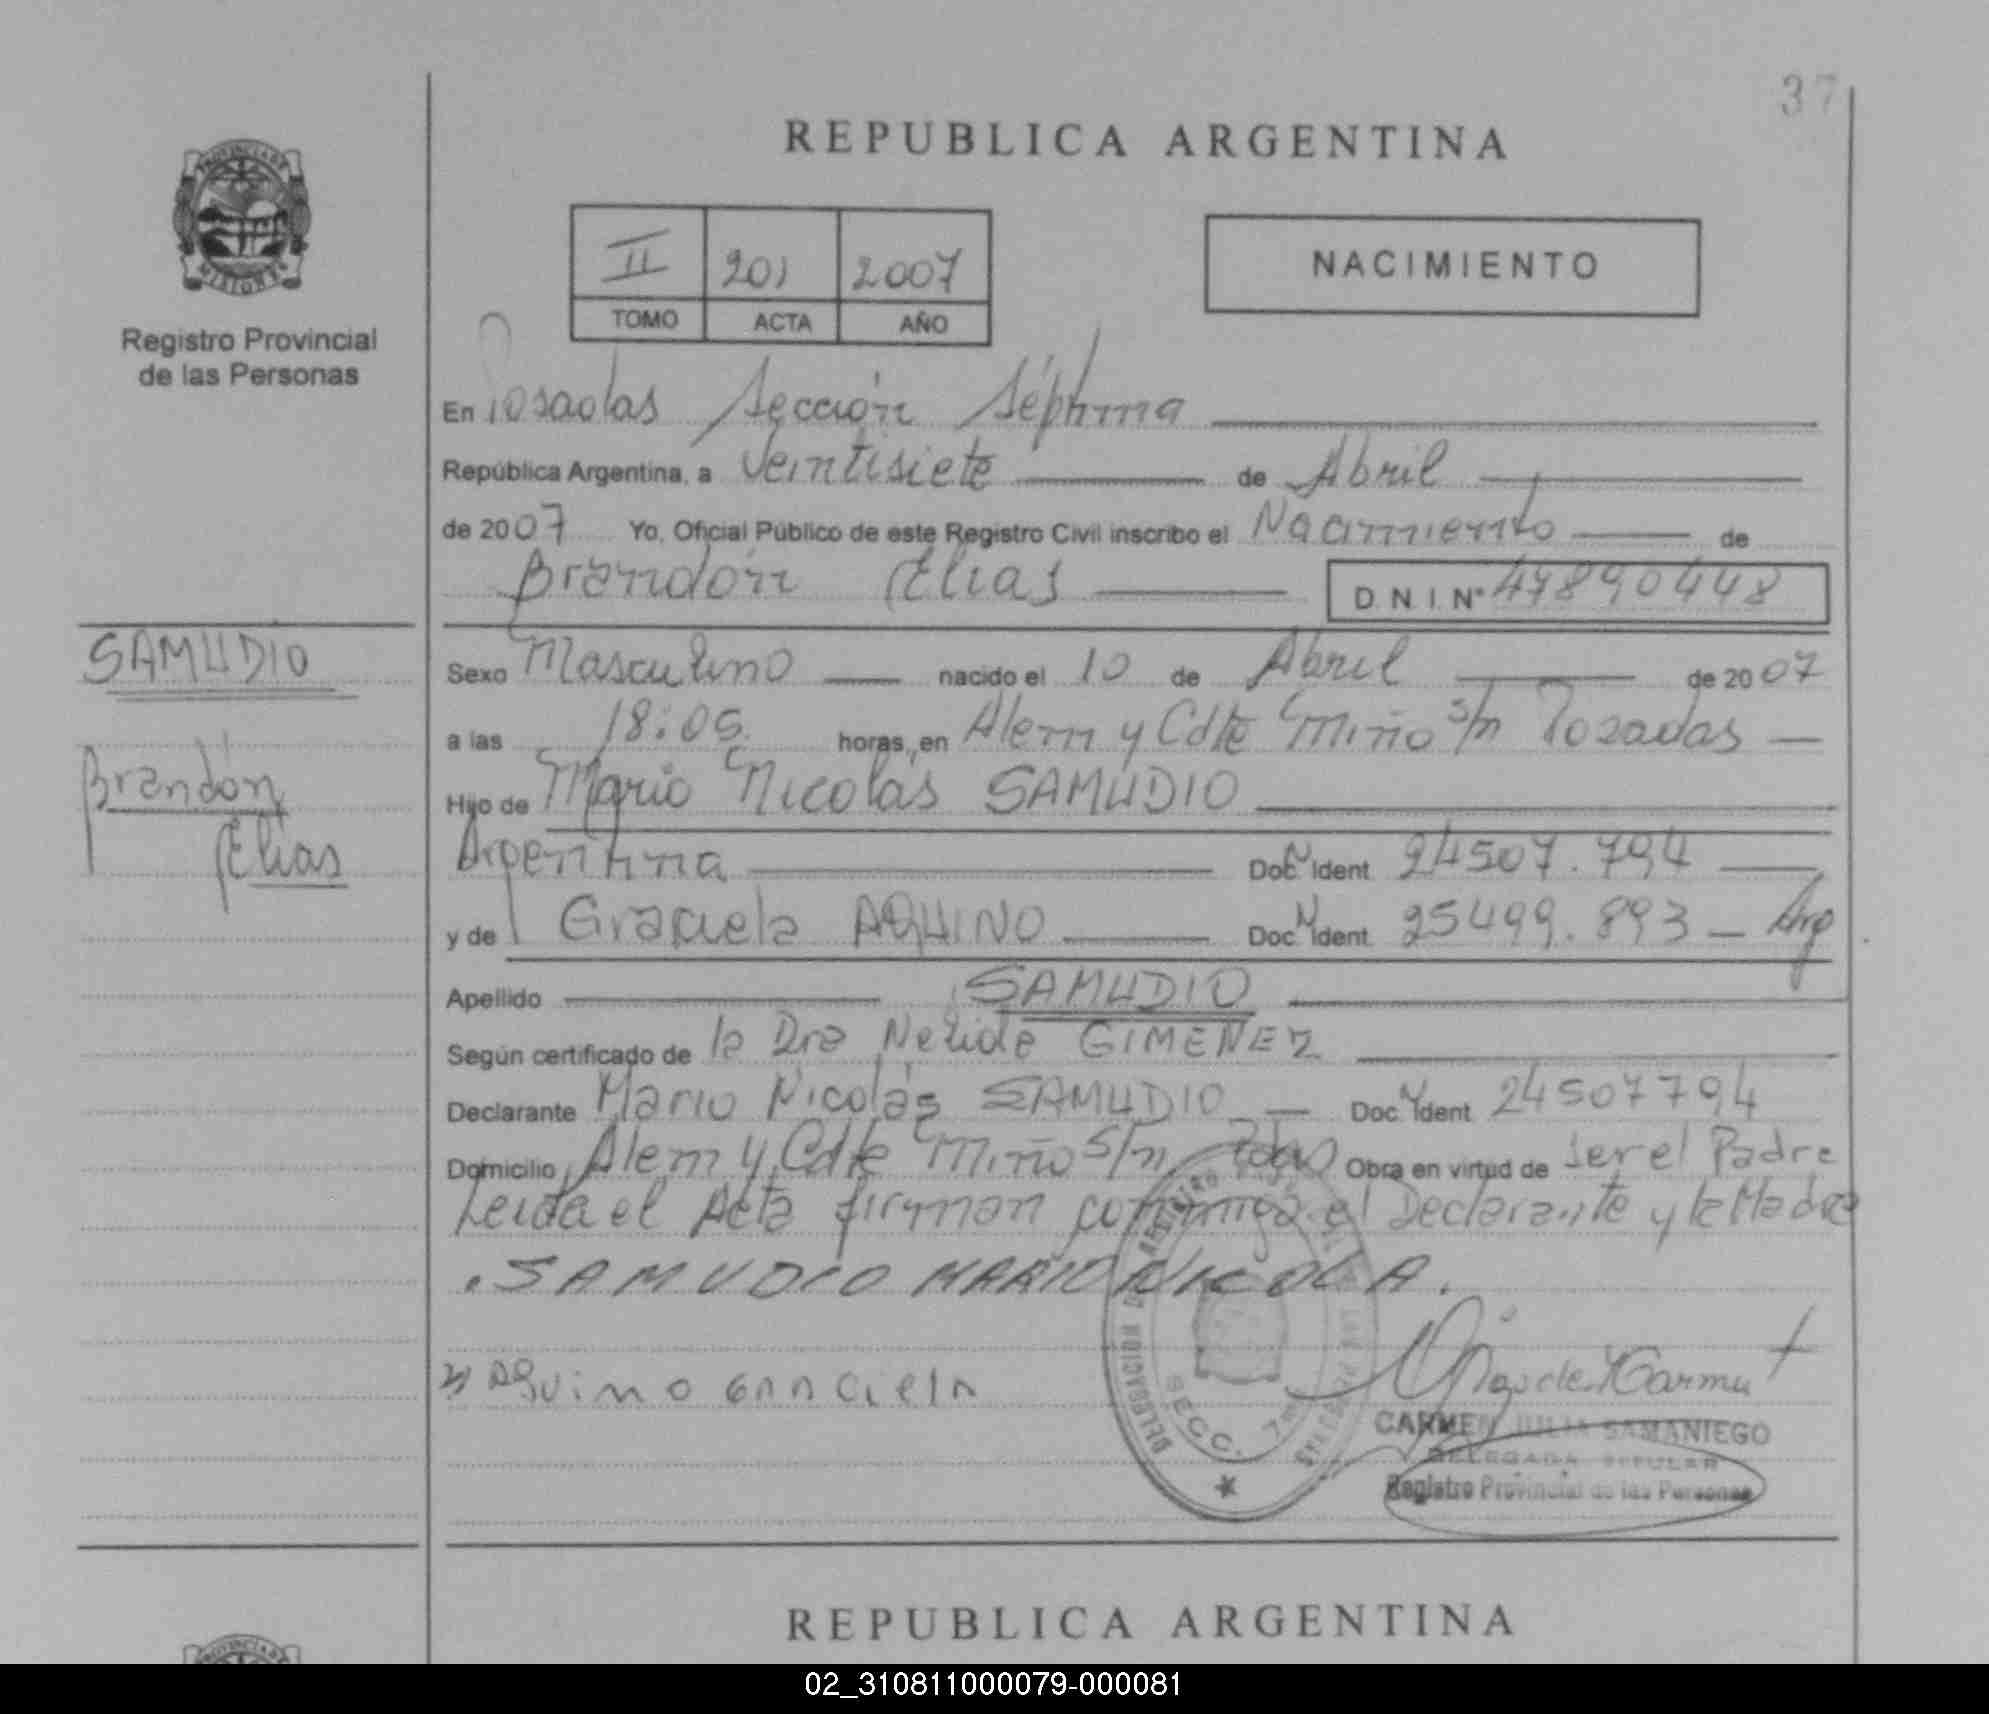 37
REPUBLICA ARGENTINA
PROVINCIA DE
MISIONES
Registro Provincial
de las Personas
II 201 2007
TOMO ACTA AÑO
NACIMIENTO
En Posadas Sección Séptima
República Argentina, a Veintisiete de Abril
de 2007 Yo, Oficial Público de este Registro Civil inscribo el Nacimiento de
Brandón Elías D.N.I. N° 47890448
SAMUDIO
Brandón
Elias
Sexo Masculino nacido el 10 de Abril de 2007
a las 18:05 horas, en Alem y Cdte Miño s/n Posadas
Hijo de Mario Nicolás SAMUDIO
Argentina Doc. N Ident. 24507.794
y de Graciela AQUINO Doc. N Ident. 25499.893 - Arg
Apellido SAMUDIO
Según certificado de la Dra Nelida GIMENEZ
Declarante Mario Nicolás SAMUDIO Doc. N Ident. 24507794
Domicilio Alem y Cdte Miño s/n Pdas Obra en virtud de ser el Padre
Leida el Acta firman conmigo el Declarante y la Madre
SAMUDIO MARIO NICOLA.
AQuino GRACIELA
DELEGACION DE REGISTRO PROVINCIAL DE LAS PERSONAS
SECC. 7ma
CARMEN JULIA SAMANIEGO
DELEGADA TITULAR
Registro Provincial de las Personas
REPUBLICA ARGENTINA
02_310811000079-000081